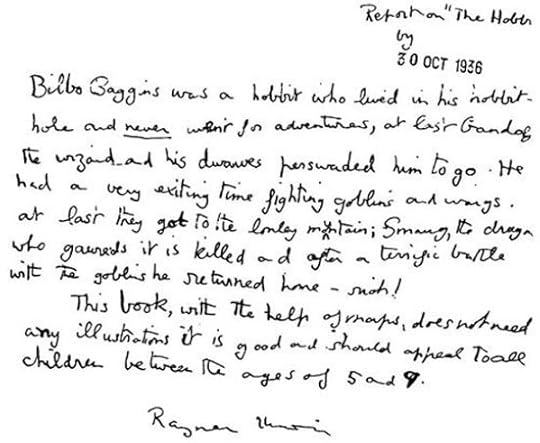 Report on "The Hobb
by
30 OCT 1936
Bilbo Baggins was a hobbit who lived in his hobbit-
hole and never went for adventures, at last Gandalf
the wizard and his dwarves perswaded him to go. He
had a very exiting time fighting goblins and wargs.
at last they got to the lonley mountain; Smaug, the dragon
who gawreds it is killed and after a terrific battle
with the goblins he returned home – rich!
This book, with the help of maps, does not need
any illustrations it is good and should appeal to all
children between the ages of 5 and 9.
Rayner Unwin